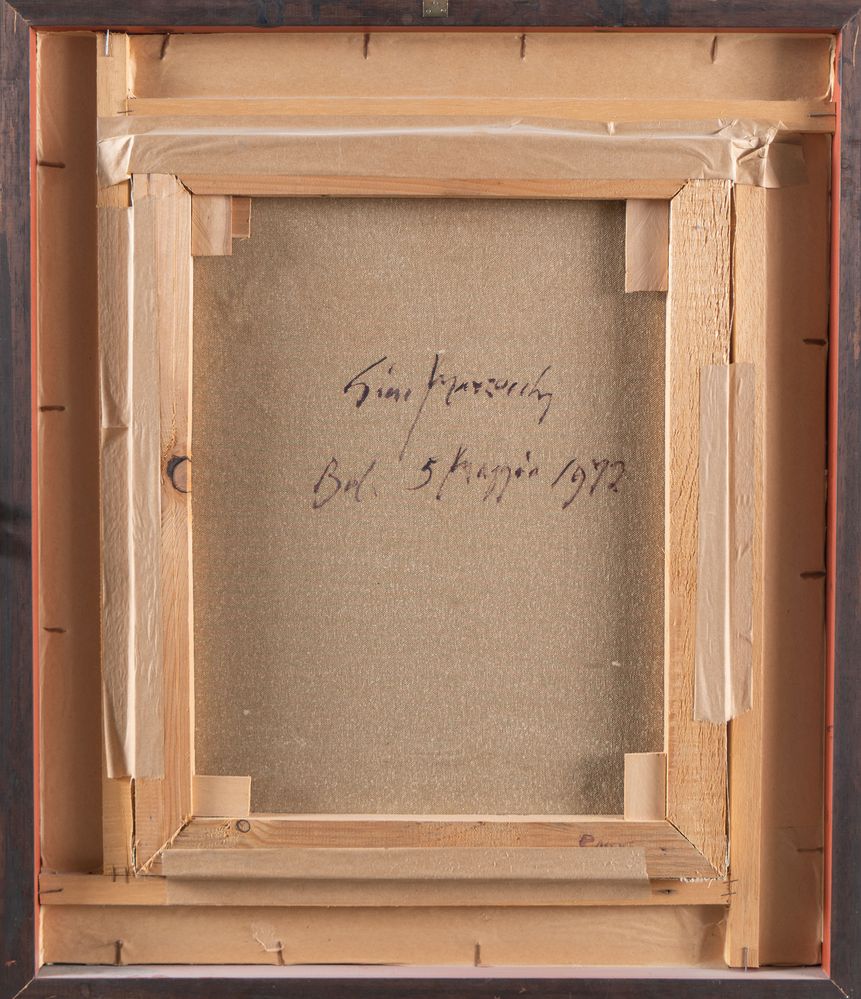 Gino Marzocchi
Bol. 5 Maggio 1972